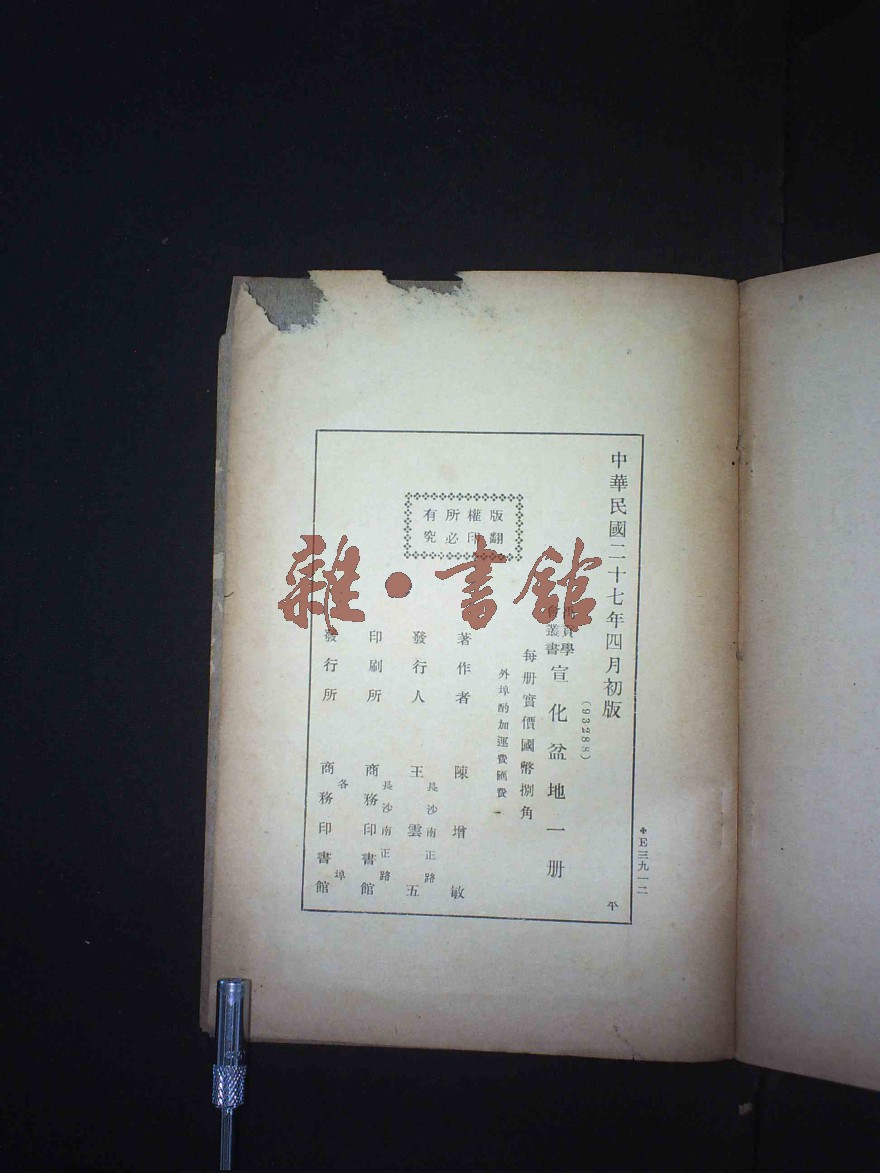 中華民國二十七年四月初版
(93288)
學
叢書
宣化盆地一册
每册實價國幣捌角
外埠酌加運費匯費
著作者 陳增敏
發行人 王雲五
長沙南正路
印刷所 商務印書館
長沙南正路
發行所 商務印書館
各埠
版權所有
翻印必究
平
E三九一二
雜·書館